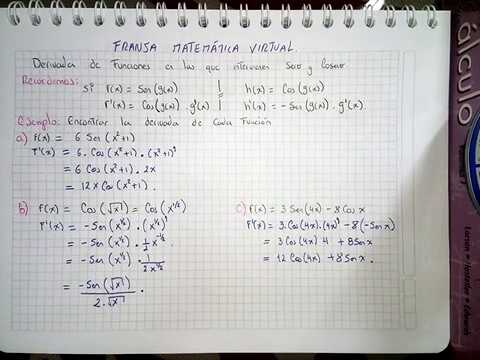 FRANSA MATEMÁTICA VIRTUAL.
Derivada de Funciones en las que intervienen Seno y Coseno
Recordemos: Si f(x) = Sen(g(x)) | h(x) = Cos(g(x))
f'(x) = Cos(g(x)) · g'(x) | h'(x) = -Sen(g(x)) · g'(x).
Ejemplo: Encontrar la derivada de Cada Función
a) f(x) = 6 Sen(x²+1)
f'(x) = 6 · Cos(x²+1) · (x²+1)'
= 6 Cos(x²+1) · 2x
= 12x Cos(x²+1).
b) f(x) = Cos(√x) = Cos(x^1/2)
f'(x) = -Sen(x^1/2) · (x^1/2)'
= -Sen(x^1/2) · 1/2 x^-1/2
= -Sen(x^1/2) · 1/2x^1/2
= -Sen(√x)/2·√x .
c) f(x) = 3 Sen(4x) - 8 Cos x
f'(x) = 3·Cos(4x)·(4x)' - 8(-Sen x)
= 3 Cos(4x) 4 + 8 Sen x
= 12 Cos(4x) + 8 Sen x .
álculo
Larson • Hostetler • Edwards